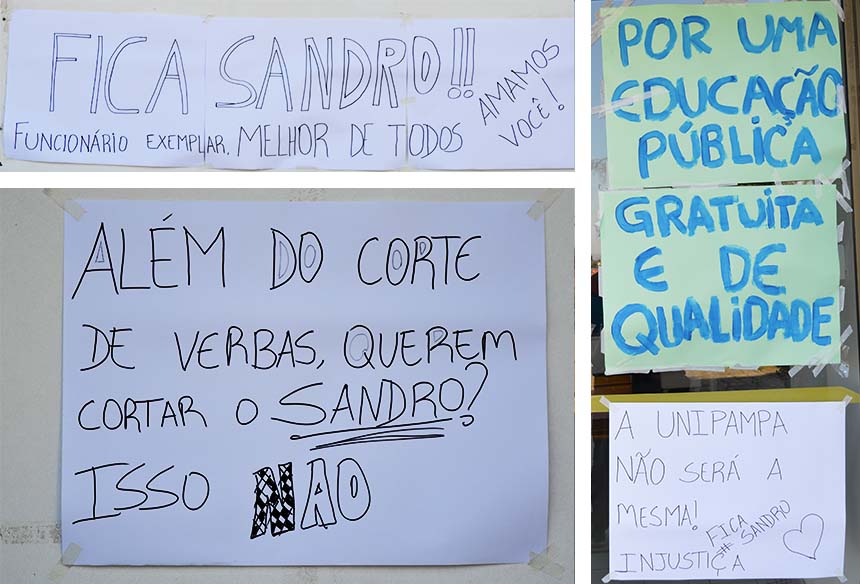 FICA SANDRO!!
FUNCIONÁRIO EXEMPLAR, MELHOR DE TODOS
AMAMOS
VOCÊ!
ALÉM DO CORTE
DE VERBAS, QUEREM
CORTAR O SANDRO?
ISSO NAO
POR UMA
EDUCAÇÃO
PÚBLICA
GRATUITA
E DE
QUALIDADE
A UNIPAMPA
NÃO SERÁ A
MESMA!
INJUSTIÇA
# FICA
SANDRO